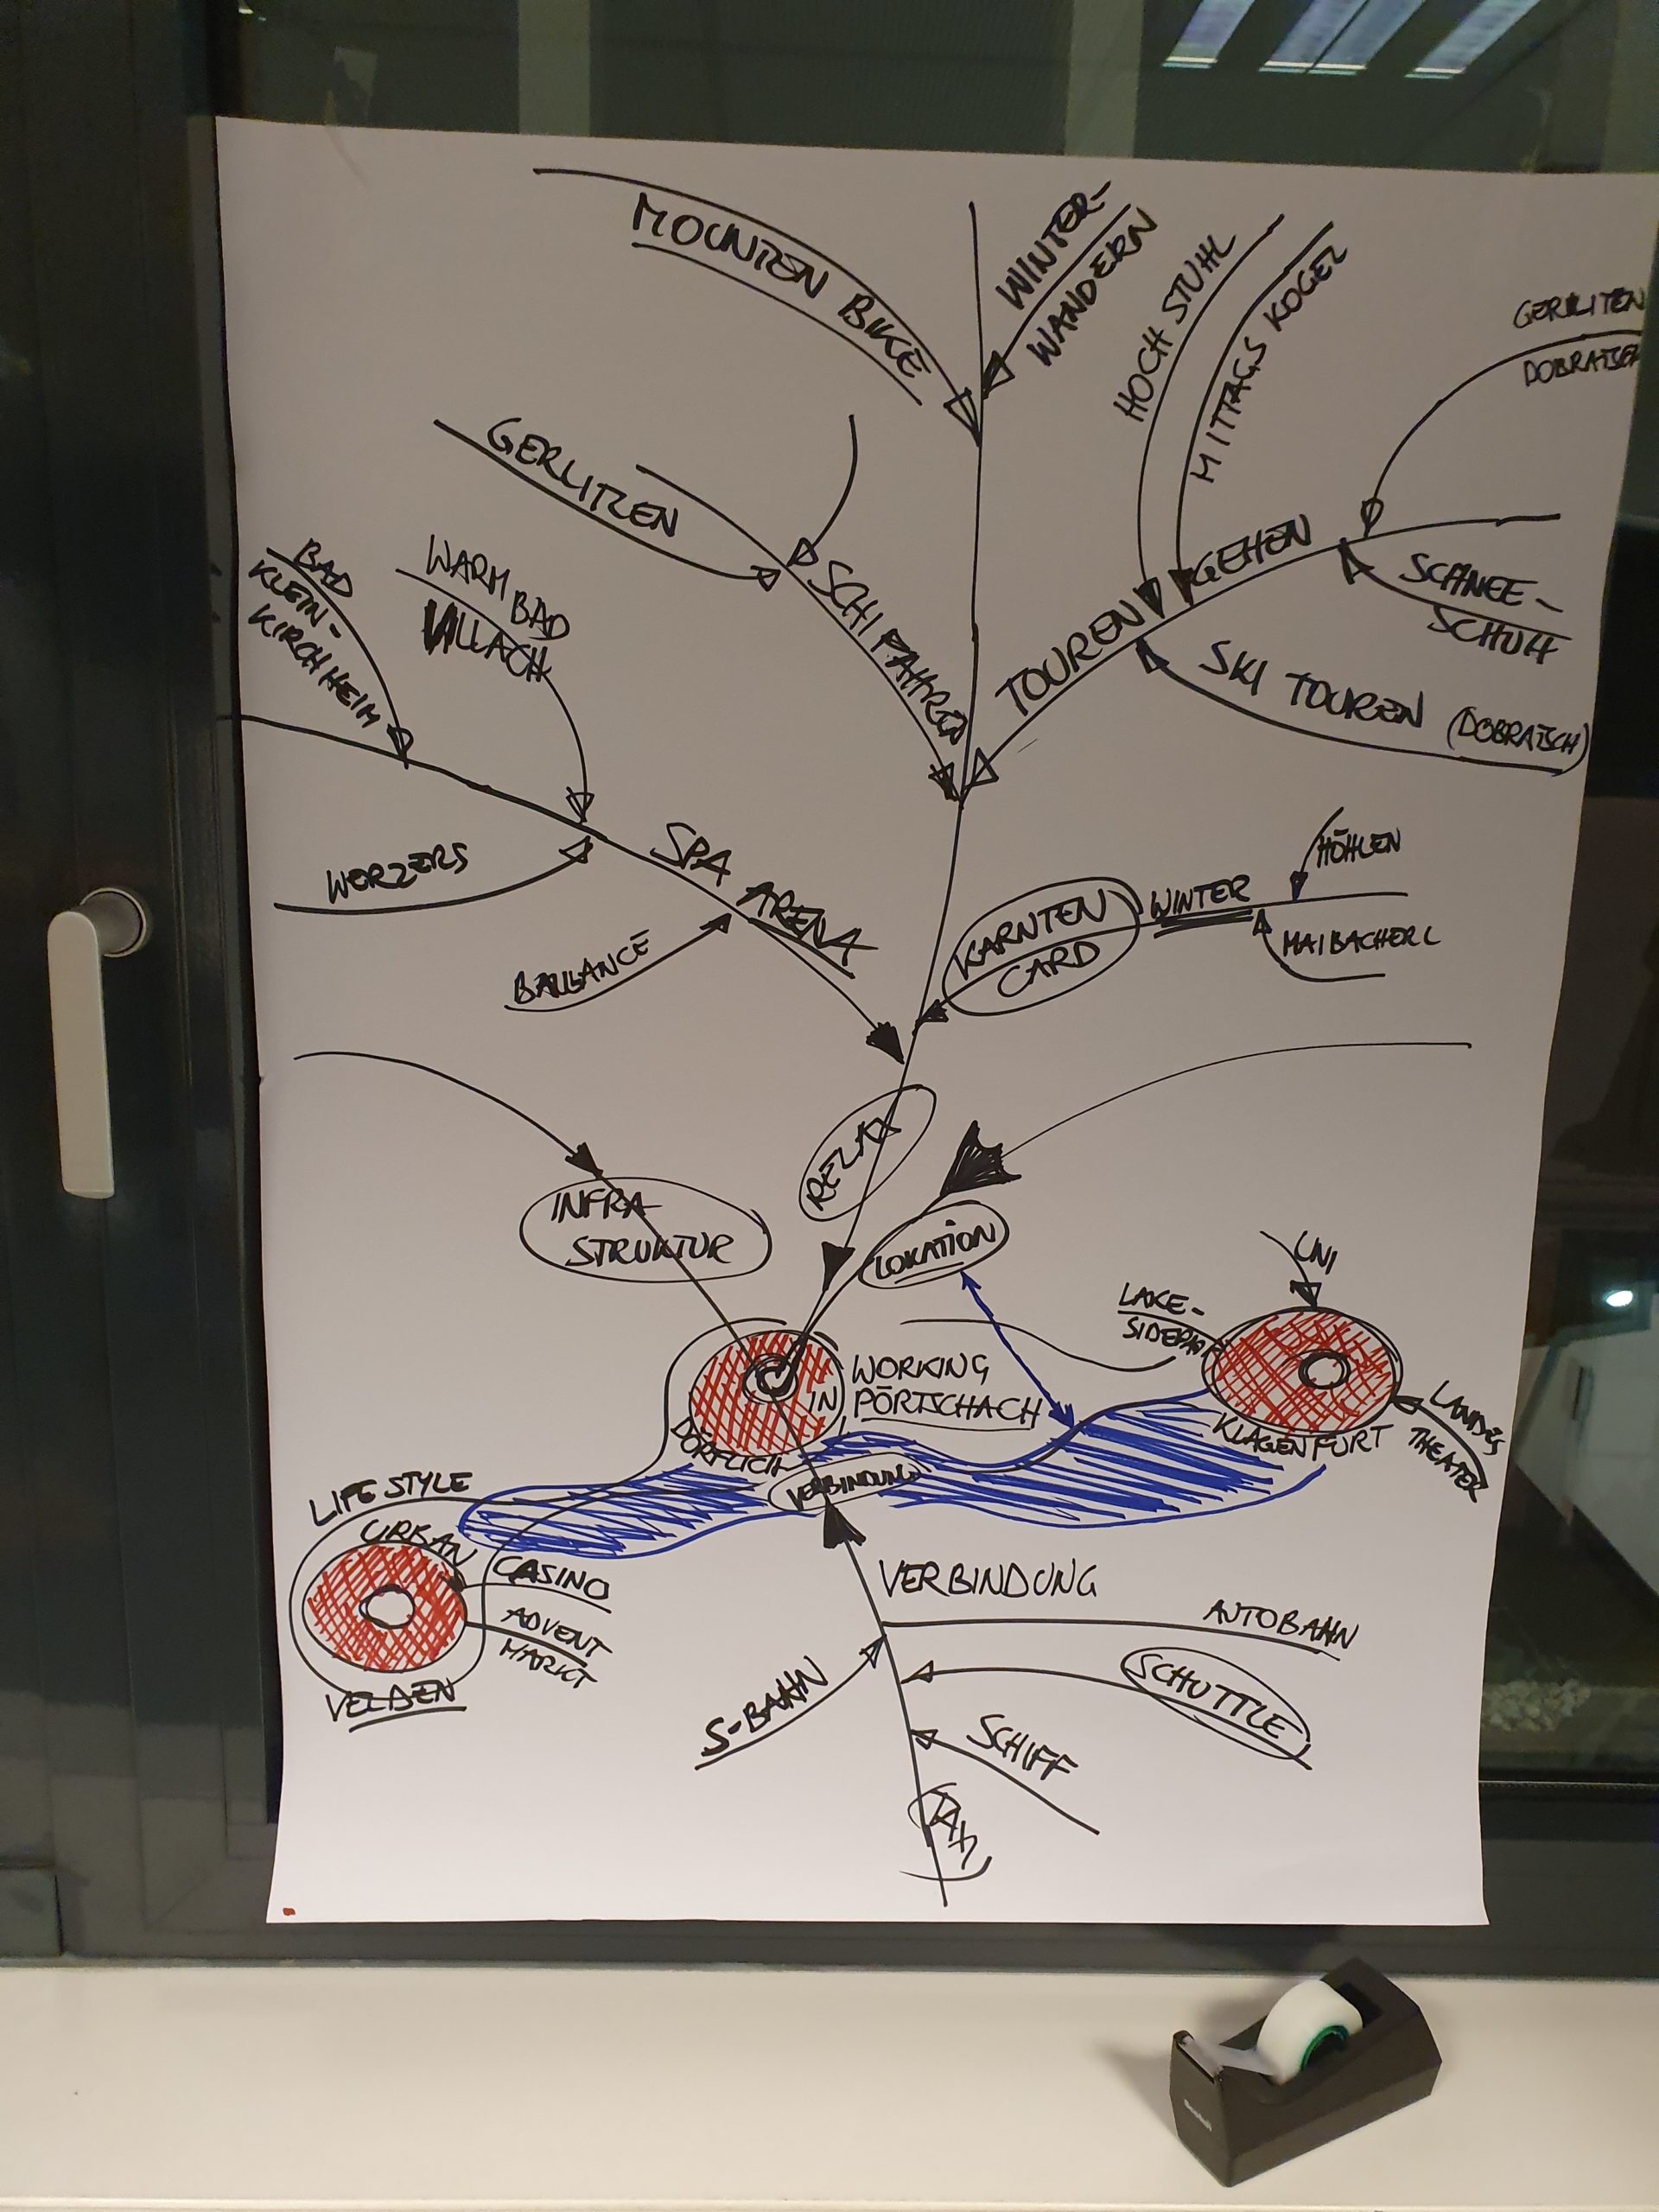 MOUNTEN BIKE
WINTER-
WANDERN
HOCH STUHL
MITTAGS KOGEL
GERLITEN
DOBRATSCH
GERLITZEN
SCHIFAHREN
TOUREN GEHEN
SCHNEE-
SCHUH
SKI TOUREN (DOBRATSCH)
BAD
KLEIN-
KIRCHHEIM
WARMBAD
VILLACH
WERZERS
SPA ARENA
BALLANCE
KÄRNTEN
CARD
WINTER
HÖHLEN
MAIBACHERL
RELAX
INFRA
STRUKTUR
LOKATION
UNI
LAKE-
SIDEPARK
WORKING
IN PÖRTSCHACH
DÖRFLICH
KLAGENFURT
LANDES
THEATER
VERBINDUNG
LIFESTYLE
URBAN
CASINO
ADVENT
MARKT
VELDEN
VERBINDUNG
AUTOBAHN
S-BAHN
SCHUTTLE
SCHIFF